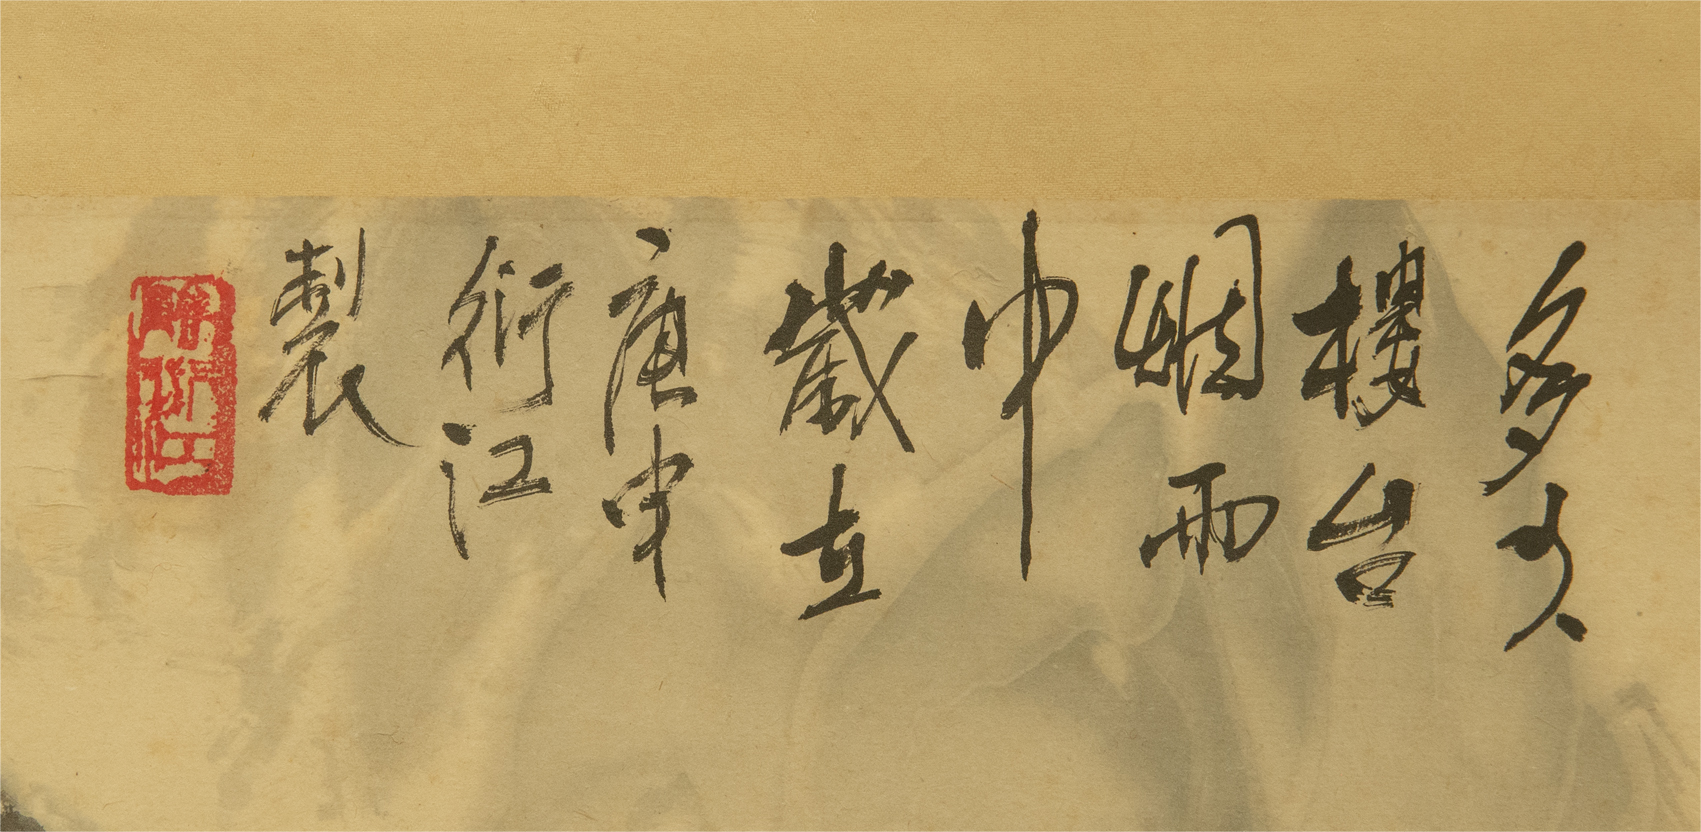 多少
樓台
烟雨
中
歲立
庚申
衍江
製